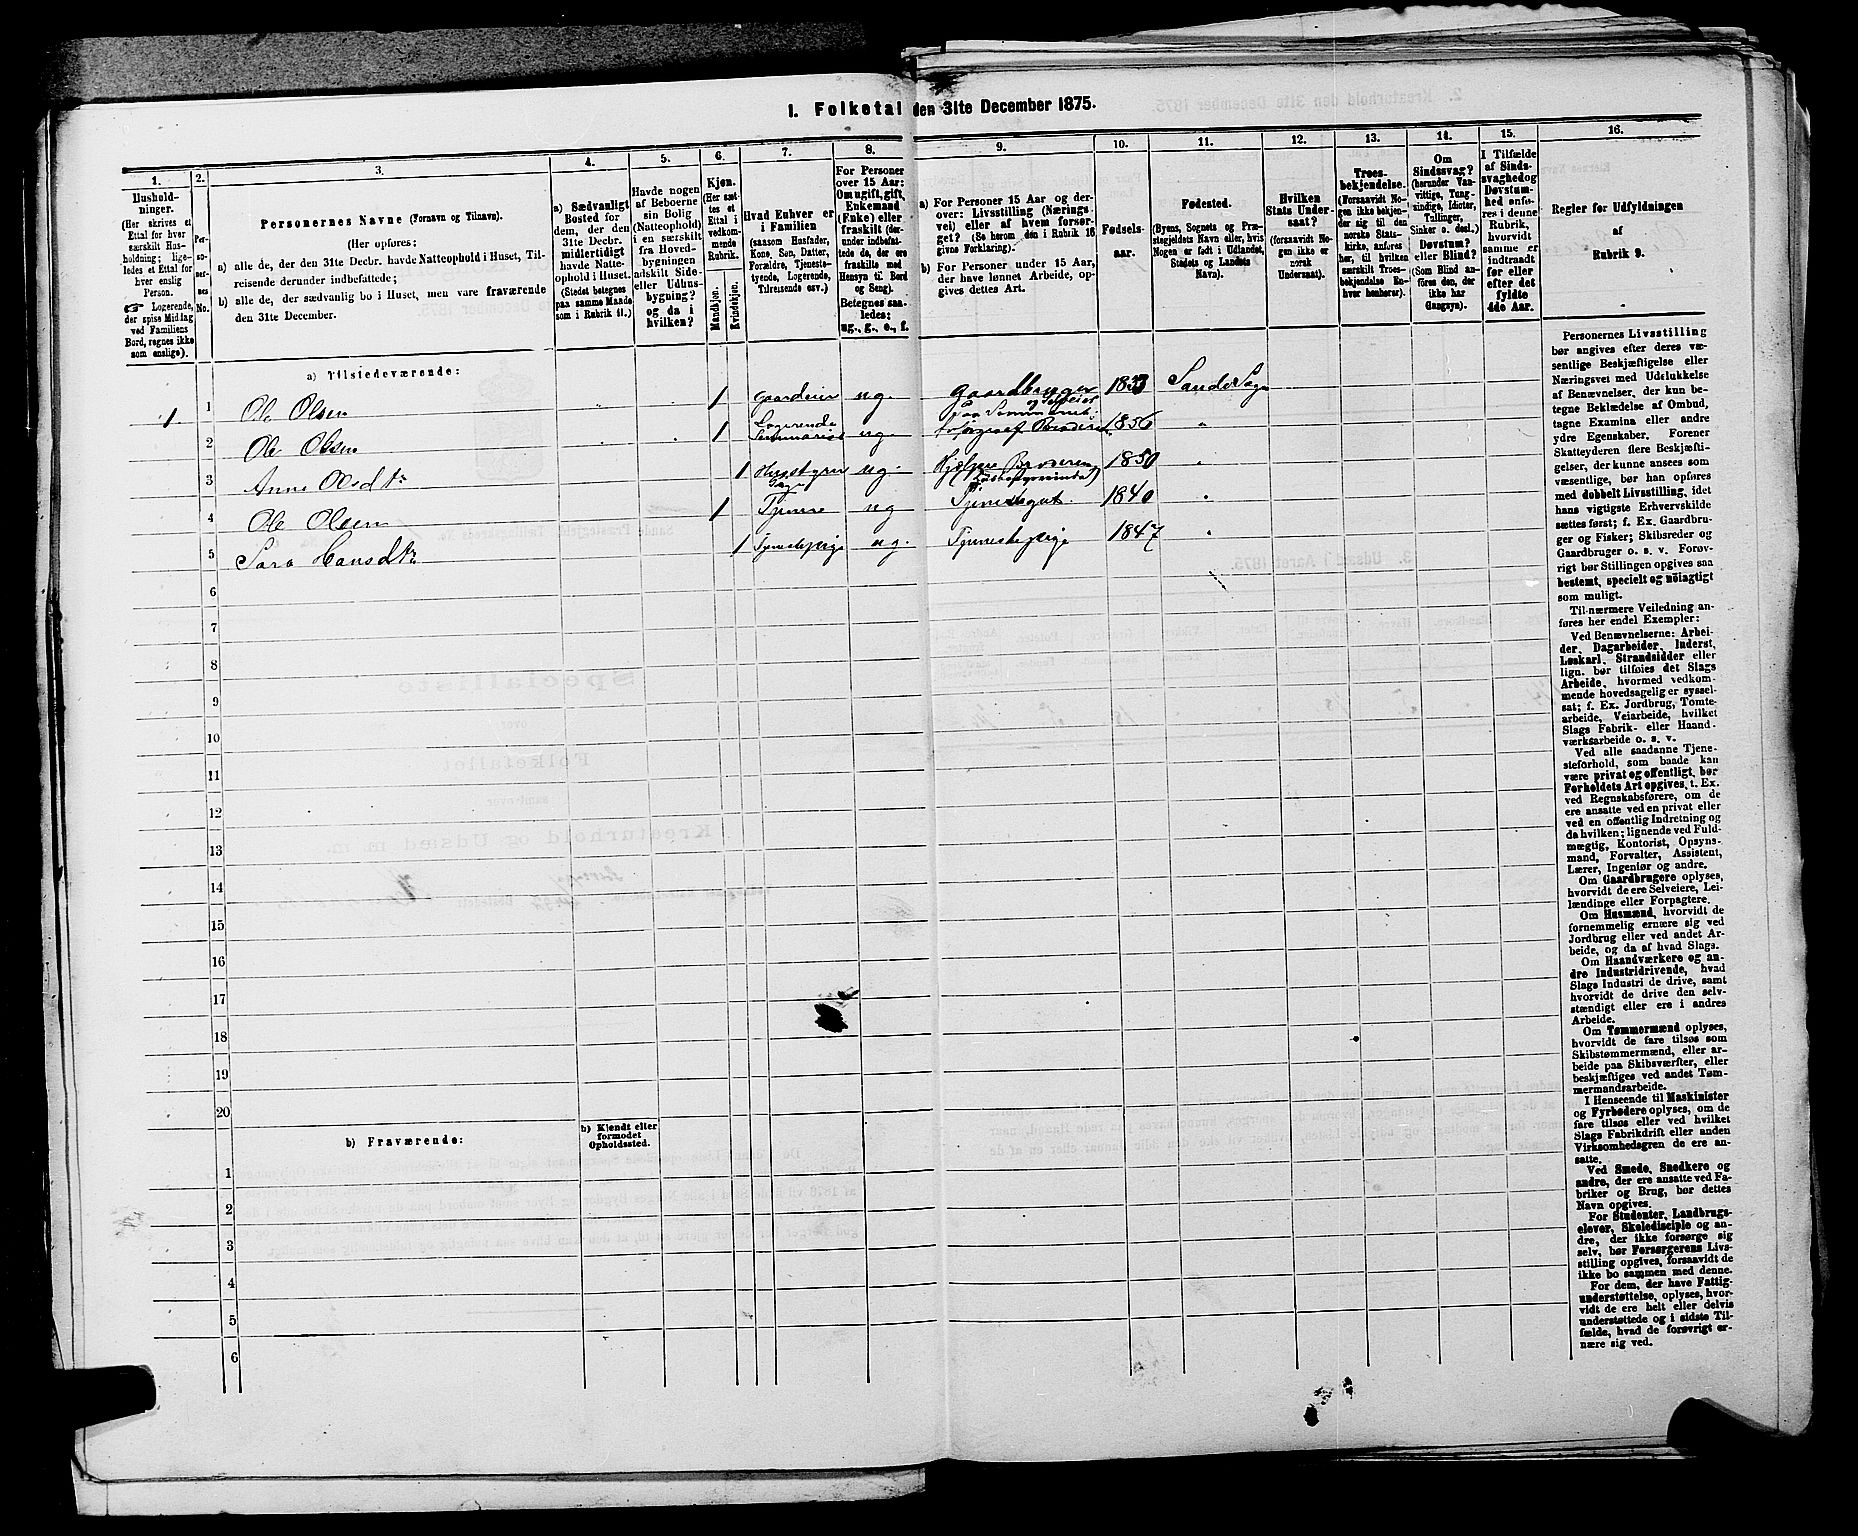 1. Folketal den 31te December 1875.
1.
Husholdninger.
(Her skrives et
Ettal for hver
særskilt Husholdning;
ligeledes et Ettal for
hver enslig
Person.
☞ Logerende,
der spise Middag
ved Familiens
Bord, regnes ikke
som enslige).
2.
Personernes
No.
3.
Personernes Navne (Fornavn og Tilnavn).
(Her opføres:
a) alle de, der den 31te Decbr. havde Natteophold i Huset, Tilreisende derunder indbefattede;
b) alle de, der sædvanlig bo i Huset, men vare fraværende
den 31te December.
4.
a) Sædvanligt
Bosted for
dem, der den
31te Decbr.
midlertidigt
havde Natteophold
i Huset.
(Stedet betegnes
paa samme Maade
som i Rubrik 11.)
5.
Havde nogen
af Beboerne
sin Bolig
(Natteophold)
i en særskilt
fra Hovedbygningen
adskilt Side-
eller Udhusbygning?
og da i
hvilken?
6.
Kjøn.
(Her sættes
et
Ettal i
vedkommende
Rubrik.
Mandkjøn.
Kvindekjøn.
7.
Hvad Enhver er
i Familien
(saasom Husfader,
Kone, Søn, Datter,
Forældre, Tjenestetyende,
Logerende,
Tilreisende osv.)
8.
For Personer
over 15 Aar:
Om ugift, gift,
Enkemand
(Enke) eller
fraskilt (derunder
indbefattede
de, der ere
fraskilte med
Hensyn til Bord
og Seng).
Betegnes saaledes:
ug., g., e., f.
9.
a) For Personer 15 Aar og derover: Livsstilling (Næringsvei) eller af hvem forsørget? (Se herom den i Rubrik 16 givne Forklaring).
b) For Personer under 15 Aar, der have lønnet Arbeide, opgives dettes Art.
10.
Fødselsaar.
11.
Fødested.
(Byens, Sognets og Præstegjeldets Navn eller, hvis Nogen er født i Udlandet, Stedets og Landets Navn).
12.
Hvilken
Stats Undersaat?
(forsaavidt Nogen ikke er
norsk
Undersaat).
13.
Troesbekjendelse.
(Forsaavidt Nogen ikke bekjender sig til den
norske Statskirke, anføres
her, til hvilken
særskilt Troesbekjendelse Enhver henhører).
14.
Om
Sindssvag?
(herunder Vanvittige, Tungsindige, Idioter, Tullinger, Sinker o. desl.)
Døvstum?
eller Blind?
(Som Blind anføres den, der
ikke har
Gangsyn).
15.
I Tilfælde
af Sindssvaghed og
Døvstumhed anføres i denne
Rubrik,
hvorvidt
samme er
indtraadt
før eller
efter det
fyldte
4de Aar.
16.
Regler for Udfyldningen
af
Rubrik 9.
a) Tilstedeværende:
1 1 Ole Olsen 1 gaardeier ug. Gaardbruger og Selveier 1833 Sande Sogn
2 Ole Olsen 1 Logerende Seminarist ug. 1856 "
3 Anne Olsdtr 1 ug. Hjælper Broderen 1850 "
4 Ole Olsen 1 Tjener ug Tjenestegut. 1840 "
5 Sara Hansdtr 1 Tjenestepige ug. Tjenestepige 1847 "
6
7
8
9
10
11
12
13
14
15
16
17
18
19
20
b) Fraværende:
b) Kjendt eller
formodet
Opholdssted.
1
2
3
4
5
6
Personernes Livsstilling
bør angives efter deres væsentlige Beskjæftigelse eller
Næringsvei med Udelukkelse
af Benævnelser, der kun betegne Beklædelse af Ombud,
tagne Examina eller andre
ydre Egenskaber. Forener
Skatteyderen flere Beskjæftigelser, der kunne ansees som
væsentlige, bør han opføres
med dobbelt Livsstilling, idet
hans vigtigste Erhvervskilde
sættes først; f. Ex. Gaardbruger og Fisker; Skibsreder og
Gaardbruger o. s. v. Forøvrigt bør Stillingen opgives saa
bestemt, specielt og nöiagtigt
som muligt.
Til nærmere Veiledning anføres her endel Exempler:
Ved Benævnelserne: Arbeider, Dagarbeider, Inderst,
Løskarl, Strandsidder eller
lign. bør tilføies det Slags
Arbeide, hvormed vedkommende hovedsagelig er sysselsat; f. Ex. Jordbrug, Tomtearbeide, Veiarbeide, hvilket
Slags Fabrik- eller Haandværksarbeide o. s. v.
Ved alle saadanne Tjenesteforhold, som baade kan
være privat og offentligt, bør
Forholdets Art opgives, t. Ex.
ved Regnskabsførere, om de
ere ansatte ved en privat eller
ved en offentlig Indretning og
da hvilken; lignende ved Fuldmægtig, Kontorist, Opsynsmand, Forvalter, Assistent,
Lærer, Ingeniør og andre.
Om Gaardbrugere oplyses,
hvorvidt de ere Selveiere, Leilændinge eller Forpagtere.
Om Husmænd, hvorvidt de
fornemmelig ernære sig ved
Jordbrug eller ved andet Arbeide, og da af hvad Slags.
Om Haandværkere og andre Industridrivende, hvad
Slags Industri de drive, samt
hvorvidt de drive den selvstændigt eller ere i andres
Arbeide.
Om Tømmermænd oplyses,
hvorvidt de fare tilsøs som
Skibstømmermænd, eller arbeide paa Skibsværfter, eller
beskjæftiges ved andet Tømmermandsarbeide.
I Henseende til Maskinister
og Fyrbødere oplyses, om de
fare tilsøs eller ved hvilket
Slags Fabrikdrift eller anden
Virksomhedsgren de ere ansatte.
Ved Smede, Snedkere og
andre, der ere ansatte ved Fabriker og Brug, bør dettes
Navn opgives.
For Studenter, Landbrugselever, Skoledisciple og andre, der ikke forsørge sig
selv, bør Forsørgerens Livsstilling opgives, forsaavidt de
ikke bo sammen med denne.
For dem, der have Fattigunderstøttelse, oplyses, hvorvidt de ere helt eller delvis
understøttede og i sidste Tilfælde, hvad de forøvrigt ernære sig ved.